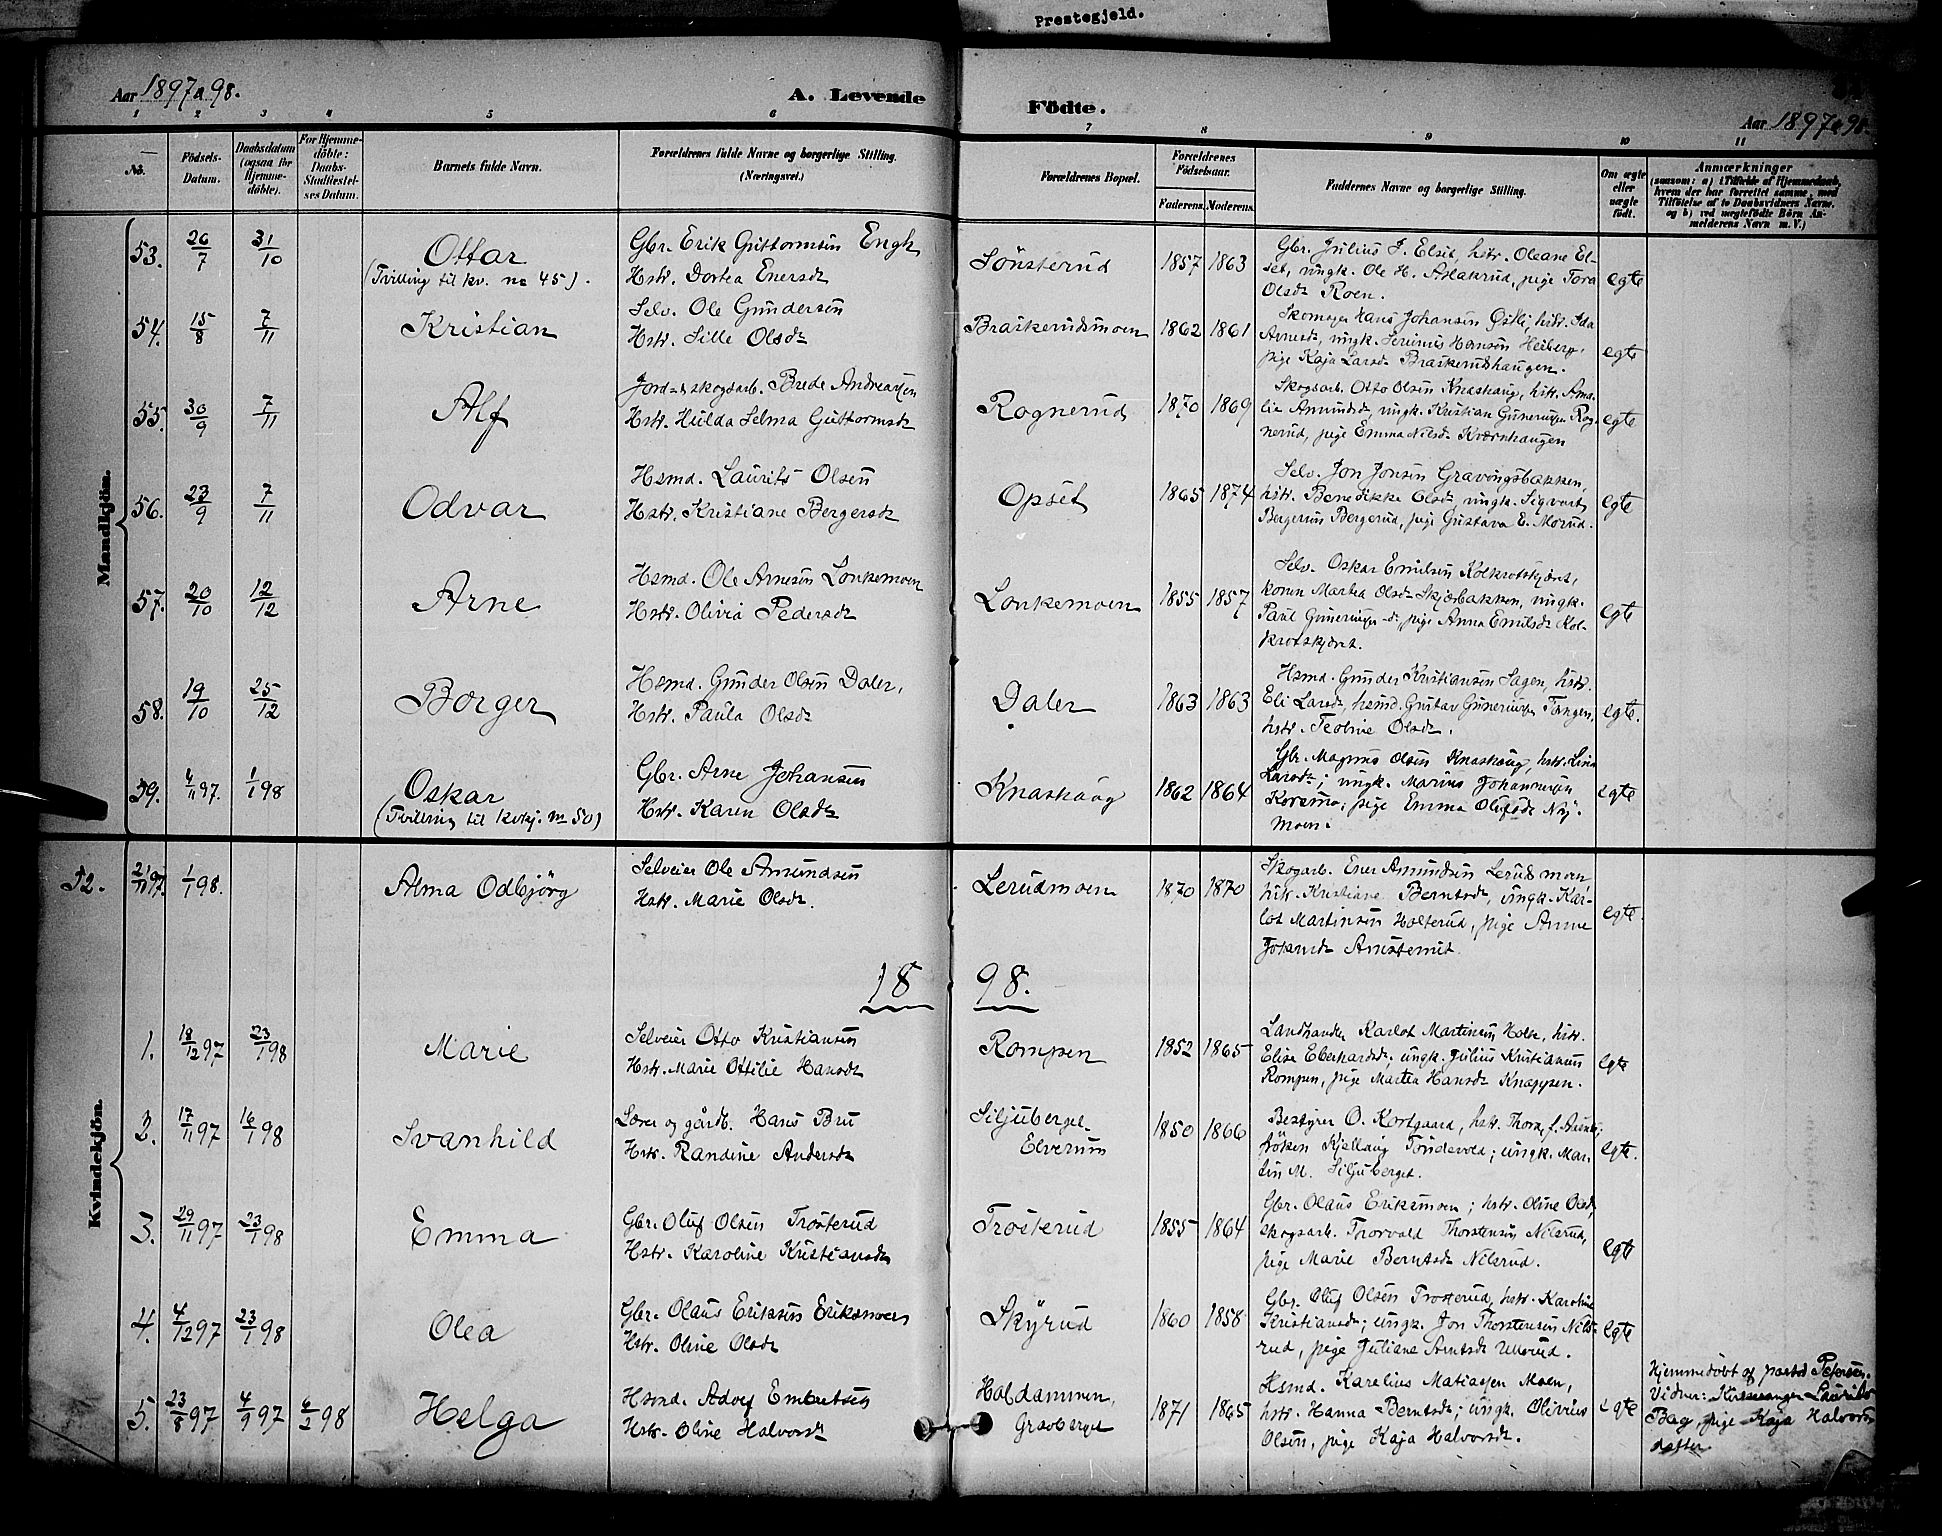 Prestegjeld.
Aar 1897 a 98.
A. Levende
Födte.
Aar 1897 a 98.
1 2 3 4 5 6 7 8 9 10 11
No.
Födsels-
Datum.
Daabsdatum
(ogsaa for
Hjemme-
döbte).
For Hjemme-
döbte:
Daabs-
Stadfæstel-
ses Datum.
Barnets fulde Navn.
Forældrenes fulde Navne og borgerlige Stilling.
(Næringsvei.)
Forældrenes Bopæl.
Forældrenes
Födselsaar.
Faderens. Moderens.
Faddernes Navne og borgerlige Stilling.
Om ægte
eller
uægte
født.
Anmærkninger
(saasom: a) i Tilfælde af Hjemmedaab,
hvem der har forrettet samme, med
Tilföielse af to Daabsvidners Navne,
og b) ved uægtefödte Börn An-
melderens Navn m. V.)
Mandkjön.
53. 26/7 31/10
Ottar
(Tvilling til kv. no 45).
Gbr. Erik Guttormsen Engh
Hstr. Dortea Enersdr
Sönsterud
1857 1863
Gbr. Julius J. Elset, hstr. Oleane El-
set, ungk. Ole H. Aslakrud, pige Tora
Olsdr Roen.
egte
54. 15/8 7/11
Kristian
Selv. Ole Gundersen
Hstr. Sille Olsdr
Braskerudsmoen
1862 1861
Skomager Hans Johansen Østli, hstr. Ida
Arnesdr, ungk. Serinius Hansen Heiberg,
pige Kaja Larsdr Braskerudshaugen.
egte
55. 30/9 7/11
Alf
Jord- & skogsarb. Brede Andreassen
Hstr. Hulda Selma Guttormsdr
Rognerud
1870 1869
Skogsarb. Otto Olsen Knashaug, hstr. Ama-
lie Amundsdr, ungk. Kristian Gunneriusen Rog-
nerud, pige Emma Nilsdr Kværnhaugen
egte
56. 23/9 7/11
Odvar
Hsmd. Laurits Olsen
Hstr. Kristiane Bergersdr
Opset
1865 1874
Selv. Jon Jonsen Gravingsbakken,
hstr. Benedikke Olsdr, ungk. Sigvart
Bergersen Bergerud, pige Gustava E. Morud.
egte
57. 20/10 12/12
Arne
Hsmd. Ole Arnesen Lonkemoen
Hstr. Olivia Pedersdr
Lonkemoen
1855 1857
Selv. Oskar Emilsen Kolkrotskjæret,
konen Martea Olsdr Skjærbakken, ungk.
Paul Gunneriusen do, pige Anna Emilsdr Kol-
krotskjæret.
egte
58. 19/10 25/12
Borger
Hsmd. Gunder Olsen Daler,
Hstr. Paula Olsdr
Daler
1863 1863
Hsmd. Gunder Kristiansen Sagen, hstr.
Eli Larsdr, hsmd. Gustav Gunneriusen Tangen,
hstr. Teoline Olsdr.
egte.
59. 4/11 97. 1/1 98
Oskar
(Tvilling til kvkj. no 50)
Gbr. Arne Johansen
Hstr. Karen Olsdr
Knashaug
1862 1864
Gbr. Magnus Olsen Knashaug, hstr. Lina
Larsdr; ungk. Marius Johannesen
Korsmo; pige Emma Olufsdr Ny-
moen.
egte
Kvindekjön.
52. 21/11 97. 1/1 98.
Alma Odbjörg
Selveier Ole Amundsen
Hstr. Marie Olsdr.
Lerudmoen
1870 1870
Skogarb. Ener Amundsen Lerudmoen
hstr. Kristiane Berntsdr, ungk. Kar-
lot Martinsen Holterud, pige Anne
Johansdr
egte.
18 98.
1. 18/12 97 23/1 98
Marie
Selveier Otto Kristiansen
Hstr. Marie Ottilie Hansdr
Rompen
1852 1865
Landhandler Karlot Martinsen Holte, hstr.
Elise Eberhardsdr; ungk. Julius Kristiansen
Rompen, pige Martea Hansdr Knappen.
egte
2. 17/11 97 16/1 98
Svanhild
Lærer og gårdb. Hans Bru
Hstr. Randine Andersdr
Siljuberget
Elverum
1850 1866
Bestyrer O. Kortgaard, hstr. Thora,
fröken Kjellaug Töndevold; ungk. Mar-
tin M. Siljuberget.
egte.
3. 29/11 97 23/1 98
Emma
Gbr. Oluf Olsen Trosterud
Hstr. Karoline Kristiansdr
Trosterud
1855 1864
Gbr. Olaus Eriksmoen; hstr. Oline Olsdr,
skogsarb. Thorvald Thorstensen Nilsrud,
pige Marie Berntsdr Nilsrud.
egte
4. 4/12 97 23/1 98
Olea
Gbr. Olaus Eriksen Eriksmoen
Hstr. Oline Olsdr
Skyrud
1860 1858
Gbr. Oluf Olsen Trosterud, hstr. Karoline
Kristiansdr; ungk. Jon Thorstensen Nils-
rud, pige Juliane Arntsdr Ullerud.
egte
5. 23/8 97 4/9 97 6/2 98
Helga
Hsmd. Adolf Embretsen
Hstr. Oline Halvorsdr
Holdammen,
Gravberget
1871 1865
Hsmd. Karelius Matiassen Moen,
hstr. Hanna Berntsdr; ungk. Olivius
Olsen, pige Kaja Halvorsdr.
egte
Hjemmedöbt af pastor Petersen.
Vidner: Kirkesanger Laurits
Bag, pige Kaja Halvors-
datter